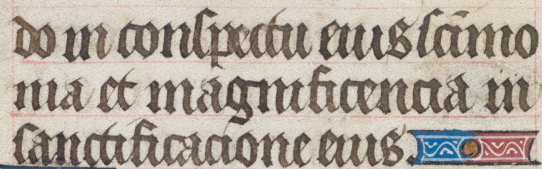 do in conspectu eius scimo
nia et magnificencia in
sanctificacione eius.